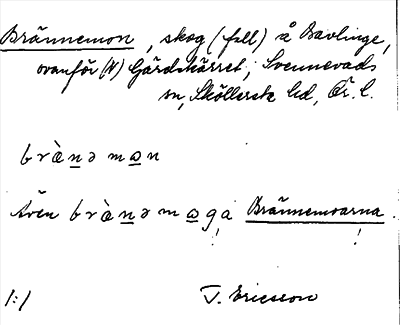 Brännemon, skog (fall) å Bavlinge,
ovanför (N) Gärdskärret; Svennevads
sn, Sköllersta hd, Ör. l.
bràn̲ə mɷ̲n
Även bràn̲ə mɷ̲ga Brännemoarna.
! !
1:1 T. Ericsson